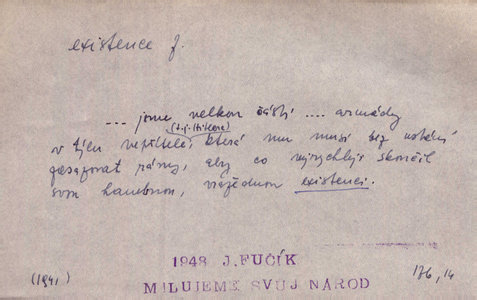 existence f.
... jsme velkou částí .... armády
(t.j. Hitlera)
v týlu nepřítele, která mu musí bez ustání
zasazovat rány, aby co nejrychleji skončil
svou hanebnou, vražednou existenci.
(1941)
1948 J. FUČÍK
MILUJEME SVUJ NÁROD
176, 14